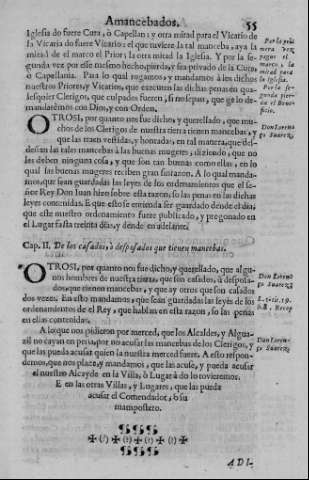 Amancebados. 55
Iglesia do fuere Cura, ò Capellan: y otra mitad para el Vicario de
la Vicaria do fuere Vicario: el que tuviere la tal manceba, aya la
mitad de el marco el Prior; la otra mitad la Iglesia. Y por la se-
gunda vez por esse mismo hecho pierda, y sea privado de la Cura,
ò Capellania. Para lo qual rogamos, y mandamos à los dichos
nuestros Priores, y Vicarios, que executen las dichas penas en qua-
lesquier Clerigos, que culpados fueren, si no sepan, que ge lo de-
mandarèmos con Dios, y con Orden.
Por la pri
mera vez
paguen el
marco, la
mitad para
la Iglesia.
Por la se-
gunda pier-
da el Bene-
ficio.
OTROSI, por quanto nos fue dicho, y querellado, que mu-
chos de los Clerigos de nuestra tierra tienen mancebas, y
que las traen vestidas, y honradas, en tal manera, que des-
desian las tales mancebas à las buenas mugeres, diziendo, que no
las deben ninguna cosa, y que son tan buenas como ellas, en lo
qual las buenas mugeres reciben gran sinrazon. A lo qual manda-
mos, que sean guardadas las leyes de los ordenamientos que el se-
ñor Rey Don Juan hizo sobre esta razon, so las penas en las dichas
leyes contenidas. E que esto se entienda ser guardado desde el dia,
que este nuestro ordenamiento fuere publicado, y pregonado en
el Lugar fasta treinta dias, y dende en adelante.
Don Loren
ço Suarez
Cap. II. De los casados, ò desposados que tienen mancebas.
OTROSI, por quanto nos fue dicho, y querellado, que algu-
nos hombres de nuestra tierra, que son casados, ò desposa-
dos, que tienen mancebas, y que ay otros que son casados
dos vezes. En esto mandamos, que sean guardadas las leyes de los
ordenamientos de el Rey, que hablan en esta razon, so las penas
en ellas contenidas.
Don Loren
ço Suarez
A lo que nos pidieron por merced, que los Alcaldes, y Algua-
zil no cayan en pena, por no acusar las mancebas de los Clerigos, y
que las pueda acusar quien la nuestra merced fuere. A esto respon-
demos, que nos place, y mandamos, que las acuse, y pueda acusar
el nuestro Alcayde en la Villa, ò Lugar à do lo tovieremos.
E en las otras Villas, y Lugares, que las pueda
acusar el Comendador, ò su
mampostero.
Don Loren-
ço Suarez
ADI-